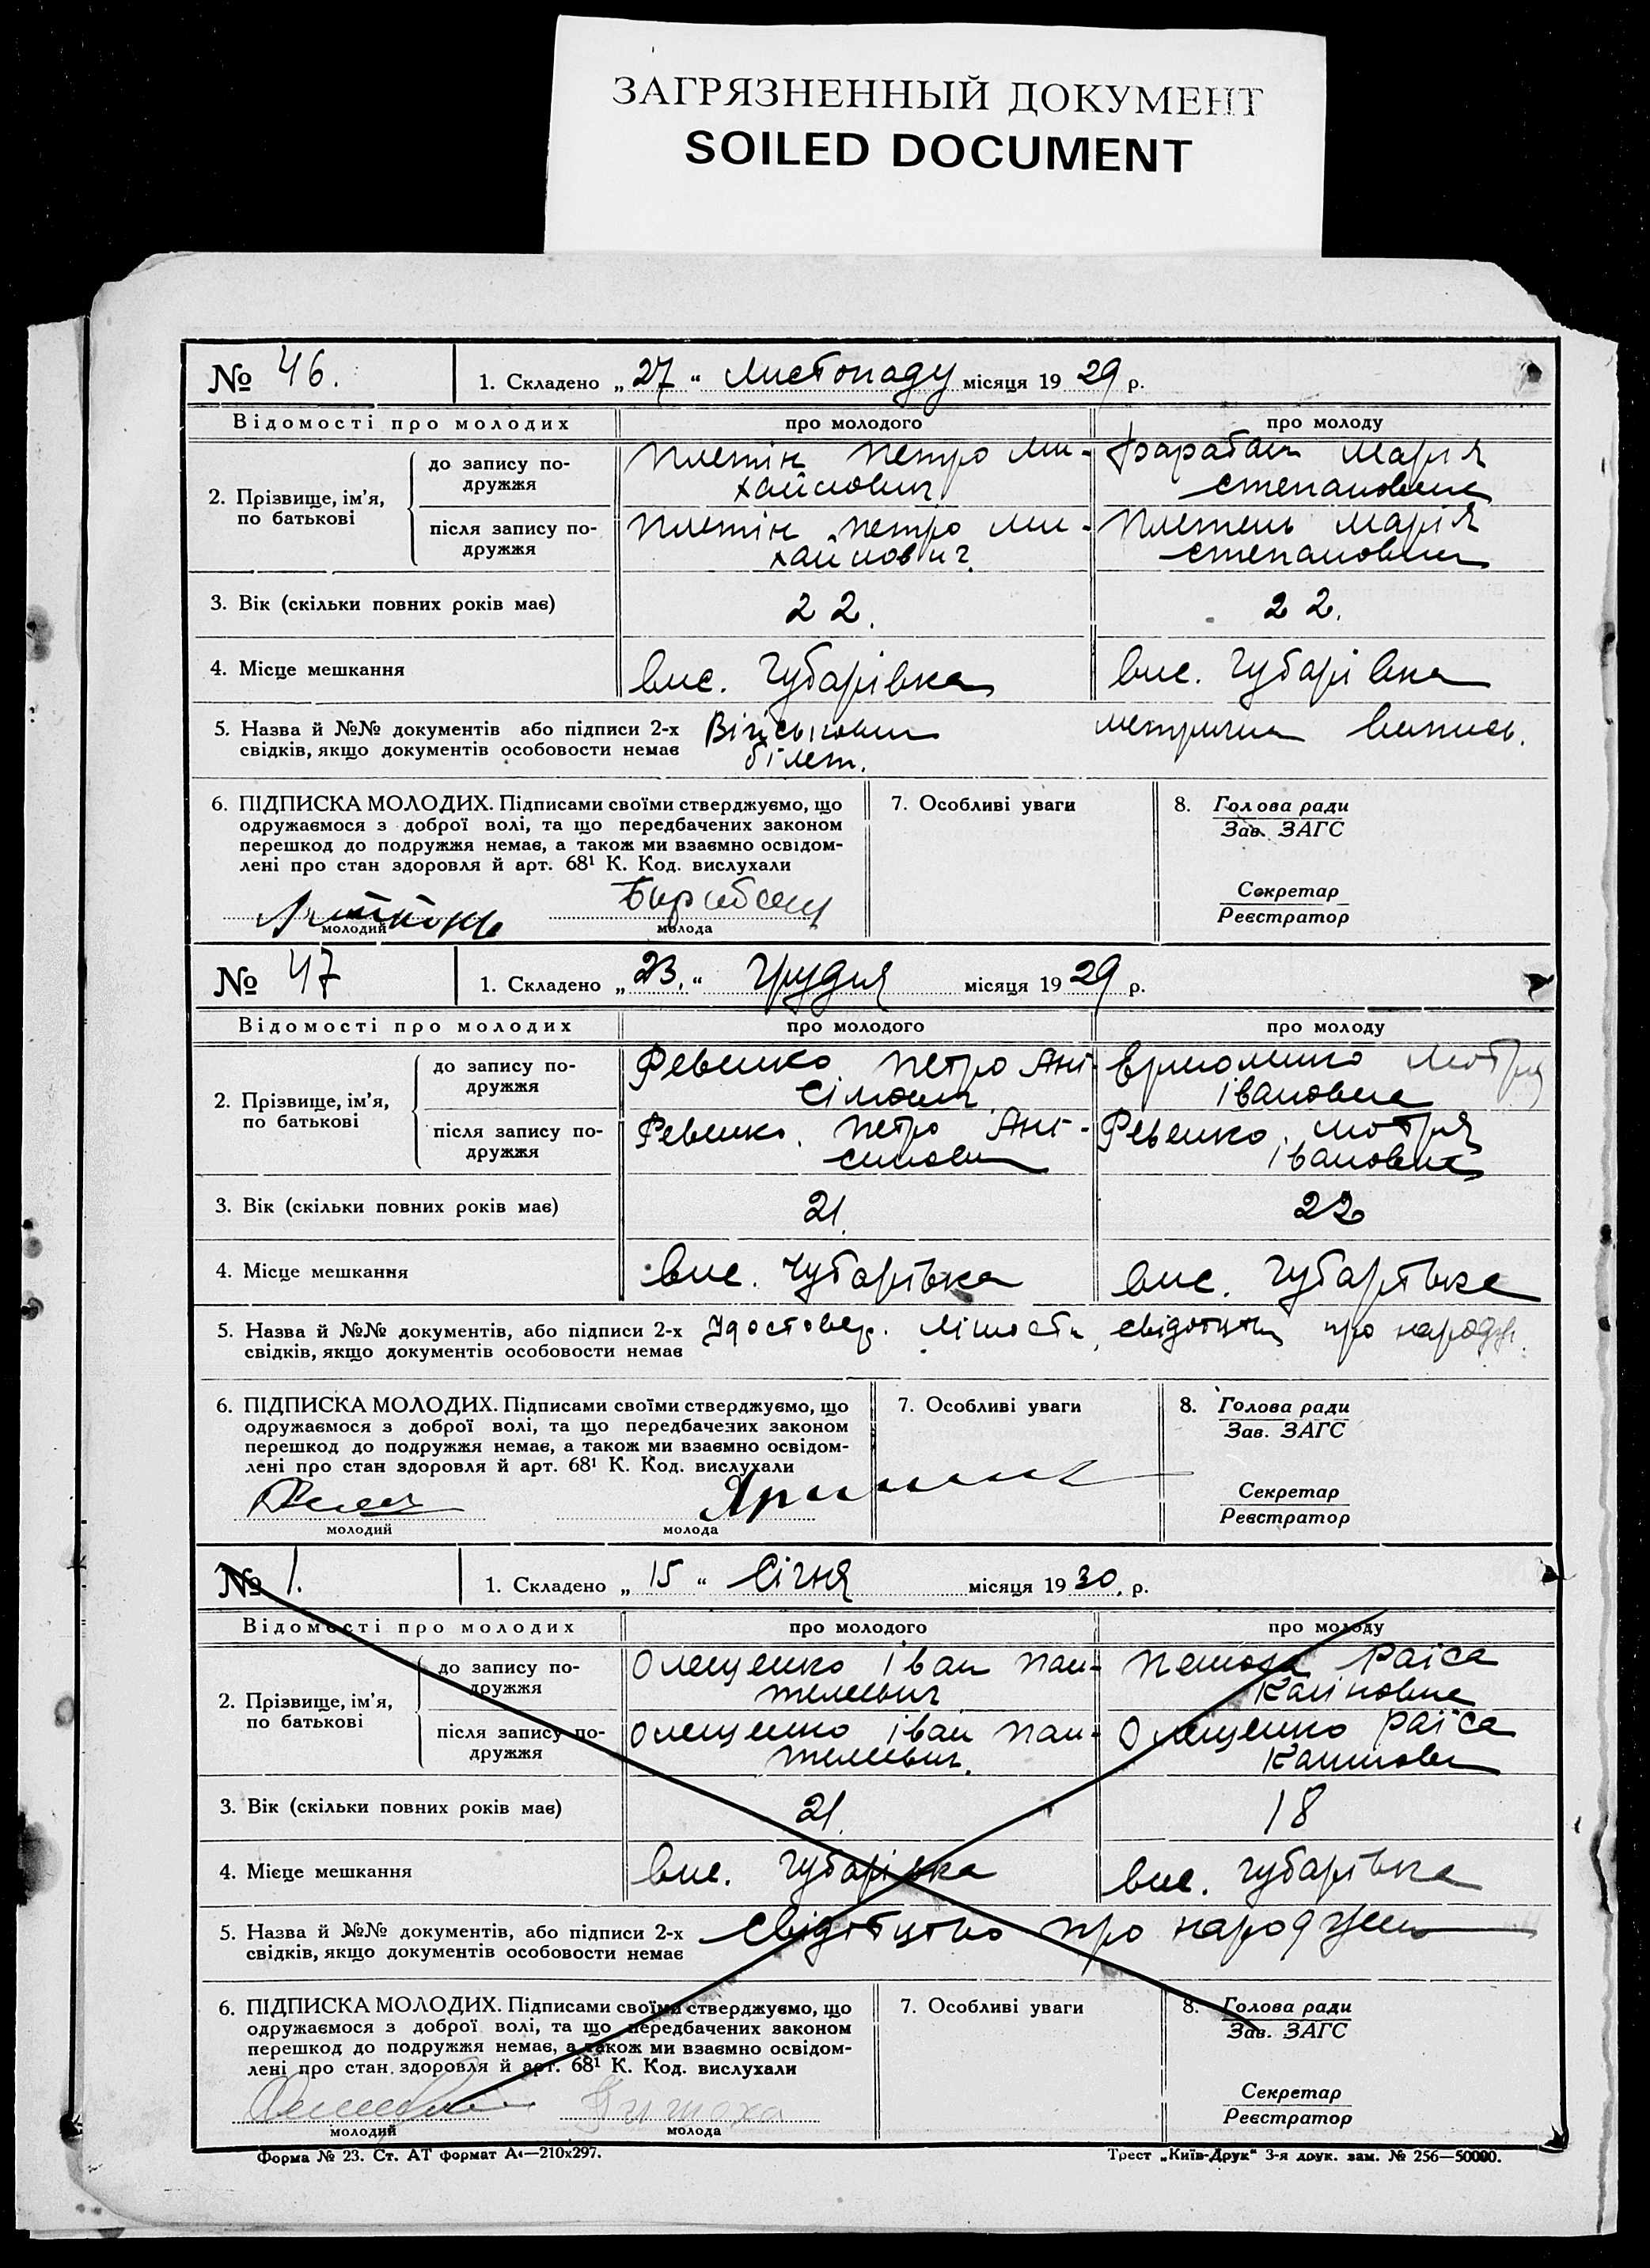 ЗАГРЯЗНЕННЫЙ ДОКУМЕНТ
SOILED DOCUMENT
№ 46. 1. Складено „27“ Листопаду місяця 1929 р.
Відомості про молодих про молодого про молоду
2. Прізвище, ім’я, по батькові
до запису подружжя Плетінь Петро Ми-
хайлович
Барабаш Марія
Степановна
після запису по-
дружжя
Плетінь Петро Ми-
хайлович.
Плетень Марія
Степановна
3. Вік (скільки повних років має) 22. 22.
4. Місце мешкання вис. Губарівка вис. Губарівка
5. Назва й №№ документів або підписи 2-х Військовий метрична выпись.
свідків, якщо документів особовости немає білет.
6. ПІДПИСКА МОЛОДИХ. Підписами своїми стверджуємо, що
одружаємося з доброї волі, та що передбачених законом
перешкод до подружжя немає, а також ми взаємно освідом-
лені про стан здоровля й арт. 68¹ К. Код. вислухали
Барабаш
молодий молода
7. Особливі уваги
8. Голова ради
Зав. ЗАГС
Секретар
Реєстратор
№ 47 1. Складено „23.“ Грудня місяця 1929 р.
Відомості про молодих про молодого про молоду
2. Прізвище, ім’я,
по батькові
до запису по-
дружжя
Ревенко Петро Ані-
сімович
Ермоленко Мотря
Івановна
після запису по-
дружжя
Ревенко. Петро Ані-
симович
Ревенко. Мотря
Івановна
3. Вік (скільки повних років має) 21. 22
4. Місце мешкання вис. Губарівка вис. Губарівка
5. Назва й №№ документів, або підписи 2-х Удостовер. лічности, свідотцтва про народж.
свідків, якщо документів особовости немає
6. ПІДПИСКА МОЛОДИХ. Підписами своїми стверджуємо, що
одружаємося з доброї волі, та що передбачених законом
перешкод до подружжя немає, а також ми взаємно освідом-
лені про стан здоровля й арт. 68¹ К. Код. вислухали
молодий молода
7. Особливі уваги
8. Голова ради
Зав. ЗАГС
Секретар
Реєстратор
№ 1. 1. Складено „15“ Січня місяця 1930. р.
Відомості про молодих про молодого про молоду
2. Прізвище, ім’я,
по батькові
до запису по-
дружжя
Олещенко Іван Пан-
телеевич
Раїса
після запису по-
дружжя
Олещенко Іван Пан-
телеевич.
Олещенко Раїса
3. Вік (скільки повних років має) 21. 18
4. Місце мешкання вис. Губарівка вис. Губарівка
5. Назва й №№ документів, або підписи 2-х свідотцтво про народженн
свідків, якщо документів особовости немає
6. ПІДПИСКА МОЛОДИХ. Підписами своїми стверджуємо, що
одружаємося з доброї волі, та що передбачених законом
перешкод до подружжя немає, а також ми взаємно освідом-
лені про стан здоровля й арт. 68¹ К. Код. вислухали
молодий молода
7. Особливі уваги
8. Голова ради
Зав. ЗАГС
Секретар
Реєстратор
Форма № 23. Ст. АТ формат А₄—210х297. Трест „Київ-Друк“ 3-я друк. зам. № 256—50000.